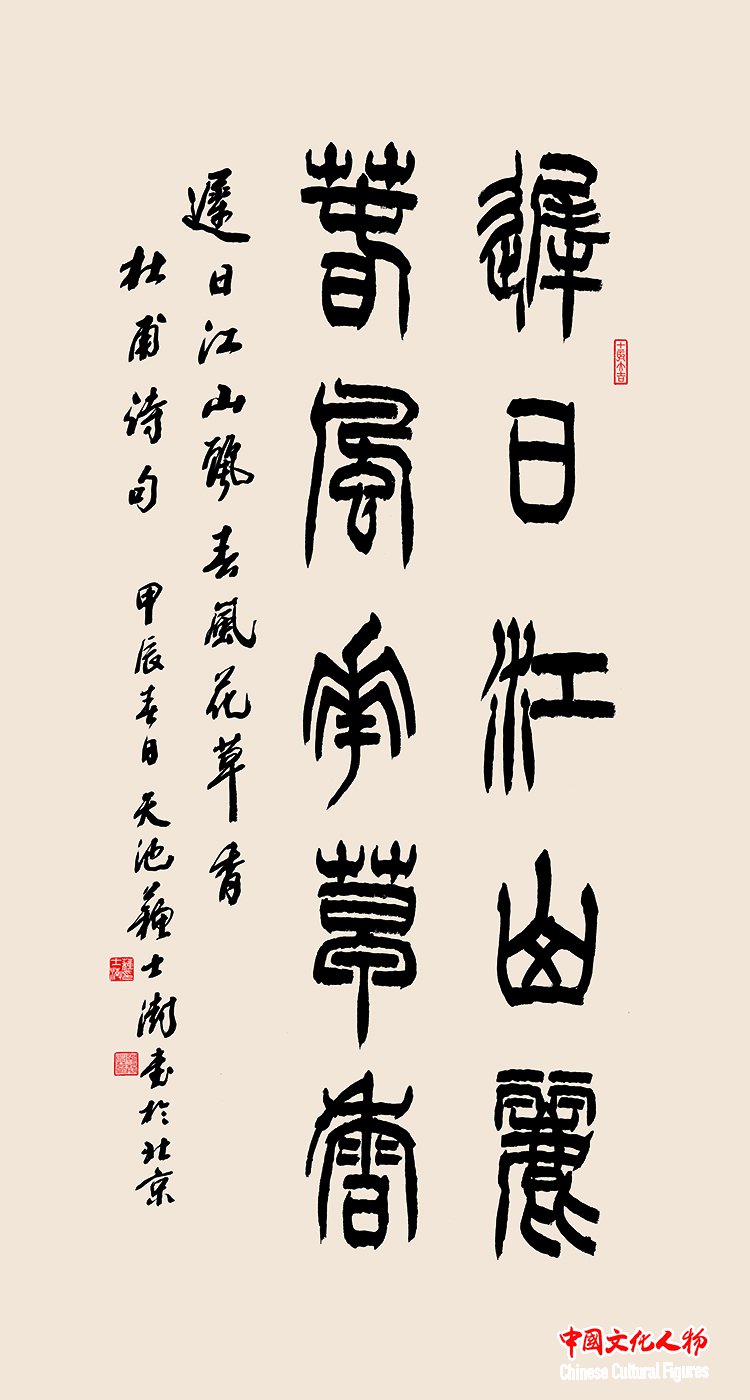 遲日江山麗
春風花草香
遲日江山麗春風花草香
杜甫诗句 甲辰春日天池蘇士澍書於北京
中國文化人物
Chinese Cultural Figures